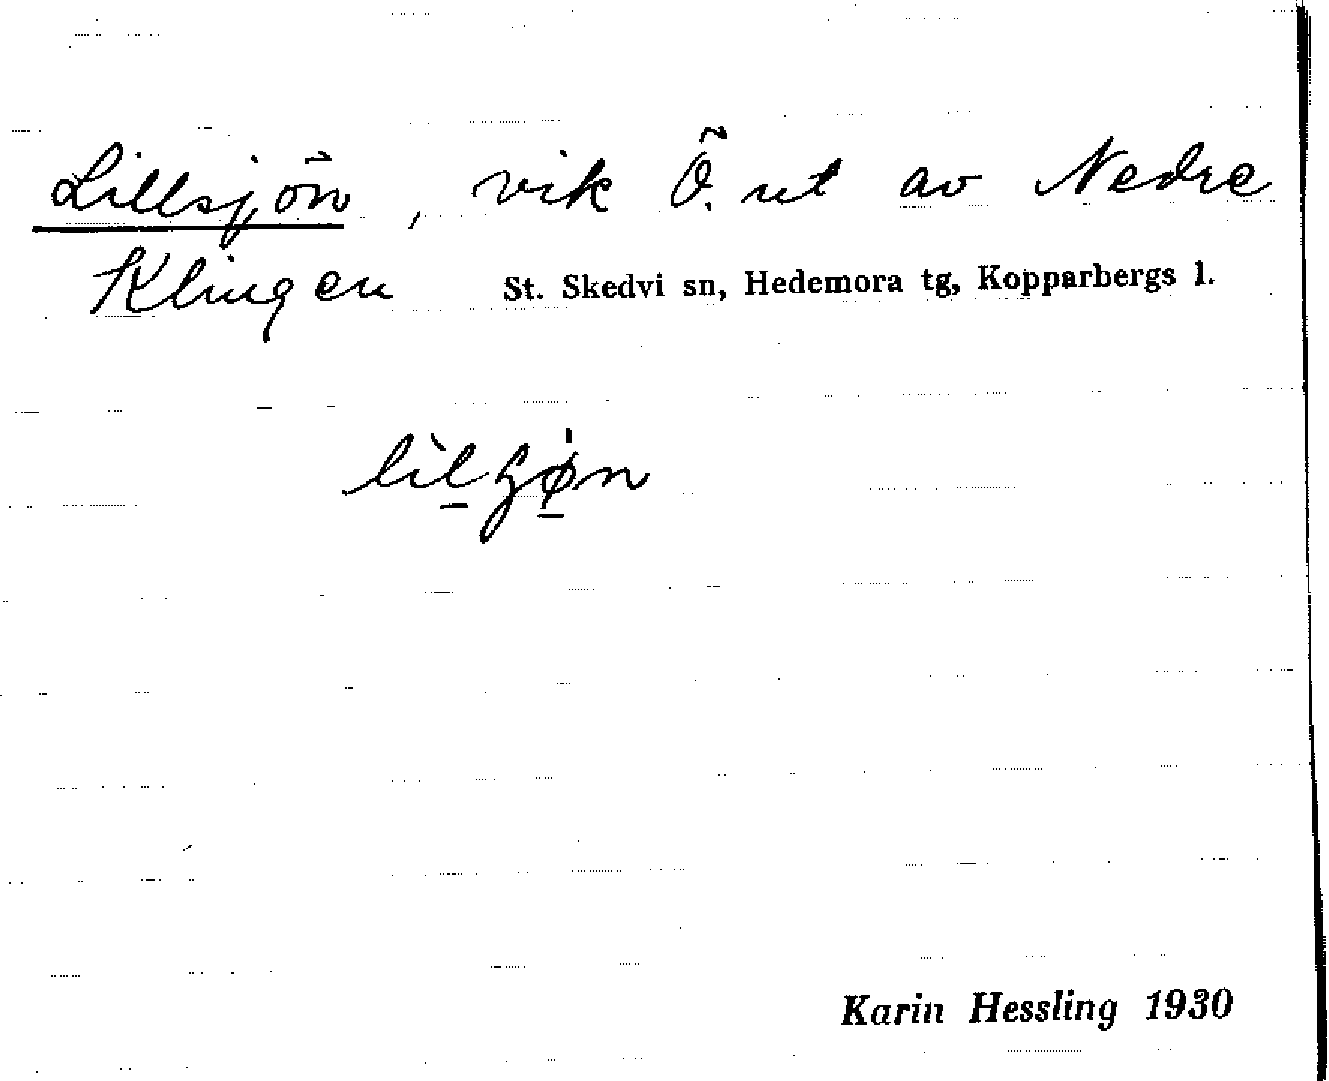 Lillsjön, vik Ö. ut av Nedre
Klingen St. Skedvi sn, Hedemora tg, Kopparbergs l.
Karin Hessling 1930